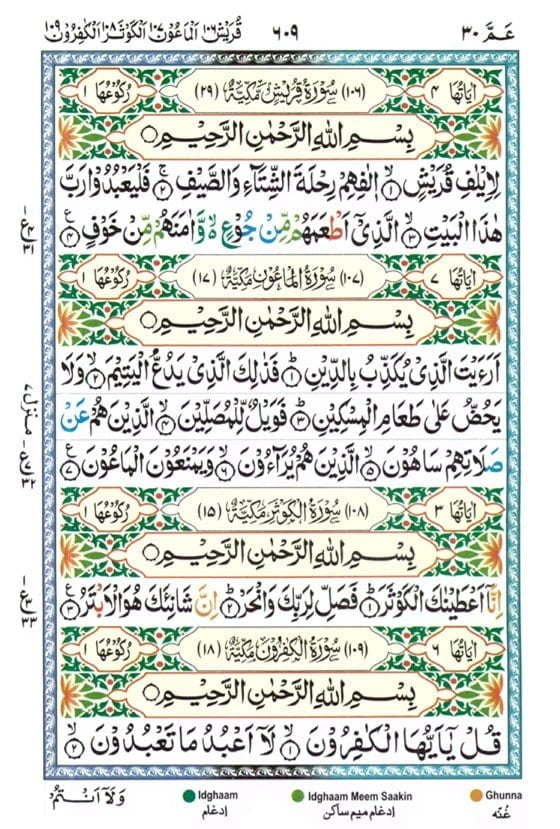 قُرَيْش ١٠٦ الْمَاعُوْن ١٠٧ الْكَوْثَر ١٠٨ الْكٰفِرُوْن ١٠٩ ٦٠٩ عَمَّ ٣٠
اٰيَاتُهَا ٤ (١٠٦) سُوْرَةُ قُرَيْشٍ مَّكِّيَّةٌ (٢٩) رُكُوْعُهَا ١
بِسْمِ اللّٰهِ الرَّحْمٰنِ الرَّحِيْمِ
لِاِيْلٰفِ قُرَيْشٍ ۙ﴿١﴾ اٖلٰفِهِمْ رِحْلَةَ الشِّتَآءِ وَالصَّيْفِ ۚ﴿٢﴾ فَلْيَعْبُدُوْا رَبَّ
هٰذَا الْبَيْتِ ۙ﴿٣﴾ الَّذِيْۤ اَطْعَمَهُمْ مِّنْ جُوْعٍ ۙ۬ وَّاٰمَنَهُمْ مِّنْ خَوْفٍ ﴿٤﴾
اٰيَاتُهَا ٧ (١٠٧) سُوْرَةُ الْمَاعُوْنَ مَكِّيَّةٌ (١٧) رُكُوْعُهَا ١
بِسْمِ اللّٰهِ الرَّحْمٰنِ الرَّحِيْمِ
اَرَءَيْتَ الَّذِيْ يُكَذِّبُ بِالدِّيْنِ ؕ﴿١﴾ فَذٰلِكَ الَّذِيْ يَدُعُّ الْيَتِيْمَ ۙ﴿٢﴾ وَلَا
يَحُضُّ عَلٰى طَعَامِ الْمِسْكِيْنِ ؕ﴿٣﴾ فَوَيْلٌ لِّلْمُصَلِّيْنَ ۙ﴿٤﴾ الَّذِيْنَ هُمْ عَنْ
صَلَاتِهِمْ سَاهُوْنَ ۙ﴿٥﴾ الَّذِيْنَ هُمْ يُرَآءُوْنَ ۙ﴿٦﴾ وَيَمْنَعُوْنَ الْمَاعُوْنَ ﴿٧﴾
اٰيَاتُهَا ٣ (١٠٨) سُوْرَةُ الْكَوْثَرِ مَكِّيَّةٌ (١٥) رُكُوْعُهَا ١
بِسْمِ اللّٰهِ الرَّحْمٰنِ الرَّحِيْمِ
اِنَّاۤ اَعْطَيْنٰكَ الْكَوْثَرَ ؕ﴿١﴾ فَصَلِّ لِرَبِّكَ وَانْحَرْ ؕ﴿٢﴾ اِنَّ شَانِئَكَ هُوَ الْاَبْتَرُ ﴿٣﴾
اٰيَاتُهَا ٦ (١٠٩) سُوْرَةُ الْكٰفِرُوْنَ مَكِّيَّةٌ (١٨) رُكُوْعُهَا ١
بِسْمِ اللّٰهِ الرَّحْمٰنِ الرَّحِيْمِ
قُلْ يٰۤاَيُّهَا الْكٰفِرُوْنَ ۙ﴿١﴾ لَاۤ اَعْبُدُ مَا تَعْبُدُوْنَ ۙ﴿٢﴾
ع
٤
٣١
منزل ٧
ع
٧
٣٢
ع
٣
٣٣
وَلَاۤ اَنْتُمْ
Idghaam
إدغام
Idghaam Meem Saakin
إدغام ميم ساكن
Ghunna
غُنّه